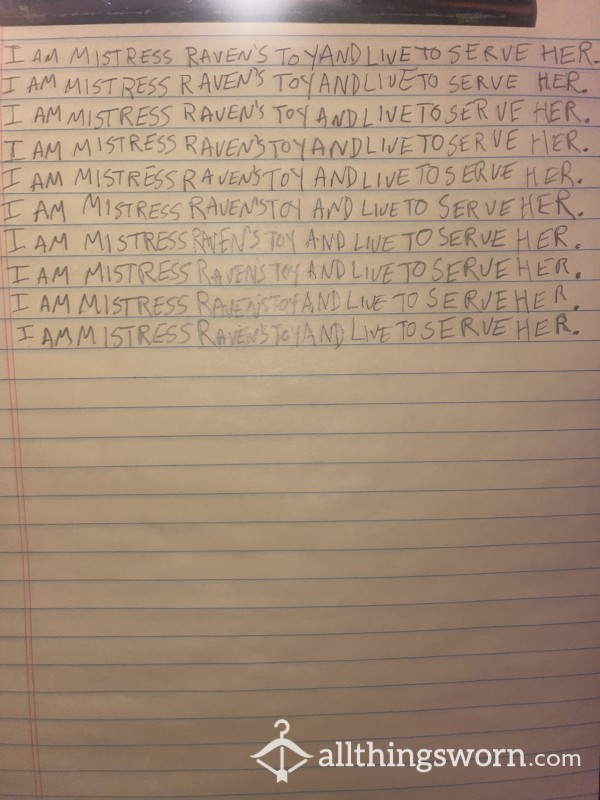 I AM MISTRESS RAVEN'S TOY AND LIVE TO SERVE HER.
I AM MISTRESS RAVEN'S TOY AND LIVE TO SERVE HER.
I AM MISTRESS RAVEN'S TOY AND LIVE TO SERVE HER.
I AM MISTRESS RAVEN'S TOY AND LIVE TO SERVE HER.
I AM MISTRESS RAVEN'S TOY AND LIVE TO SERVE HER.
I AM MISTRESS RAVEN'S TOY AND LIVE TO SERVE HER.
I AM MISTRESS RAVEN'S TOY AND LIVE TO SERVE HER.
I AM MISTRESS RAVEN'S TOY AND LIVE TO SERVE HER.
I AM MISTRESS RAVEN'S TOY AND LIVE TO SERVE HER.
I AM MISTRESS RAVEN'S TOY AND LIVE TO SERVE HER.
allthingsworn.com